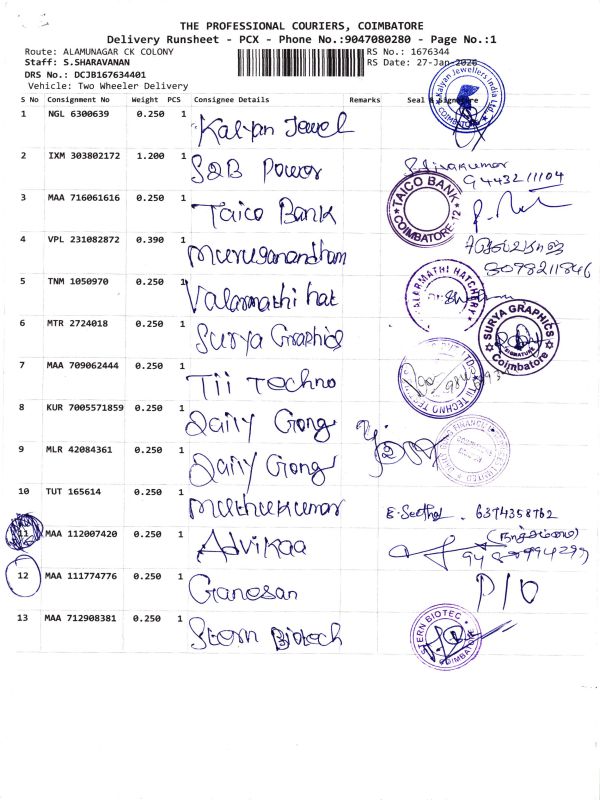 THE PROFESSIONAL COURIERS, COIMBATORE
Delivery Runsheet - PCX - Phone No.:9047080280 - Page No.:1
Route: ALAMUNAGAR CK COLONY RS No.: 1676344
Staff: S.SHARAVANAN RS Date: 27-Jan-2026
DRS No.: DCJB167634401
Vehicle: Two Wheeler Delivery
S No Consignment No Weight PCS Consignee Details Remarks Seal & Signature
Kalyan Jewellers India Ltd. COIMBATORE
1 NGL 6300639 0.250 1 Kalyan Jewel
2 IXM 303802172 1.200 1 S&B Power
9443211104
3 MAA 716061616 0.250 1 Taico Bank TAICO BANK COIMBATORE-12
4 VPL 231082872 0.390 1 Muruganandham
8098211846
5 TNM 1050970 0.250 1 Valarmathi hat VALARMATHI HATCHERY
6 MTR 2724018 0.250 1 Surya Graphics SURYA GRAPHICS SIGNATURE Coimbatore
7 MAA 709062444 0.250 1 Tii Techno TII TECHNO
8 KUR 7005571859 0.250 1 Daily Gong
9 MLR 42084361 0.250 1 Daily Gong
10 TUT 165614 0.250 1 Muthukumar 6374358762
11 MAA 112007420 0.250 1 Advikaa
12 MAA 111774776 0.250 1 Ganesan P/O
13 MAA 712908381 0.250 1 Stern Biotech STERN BIOTEC COIMBATORE